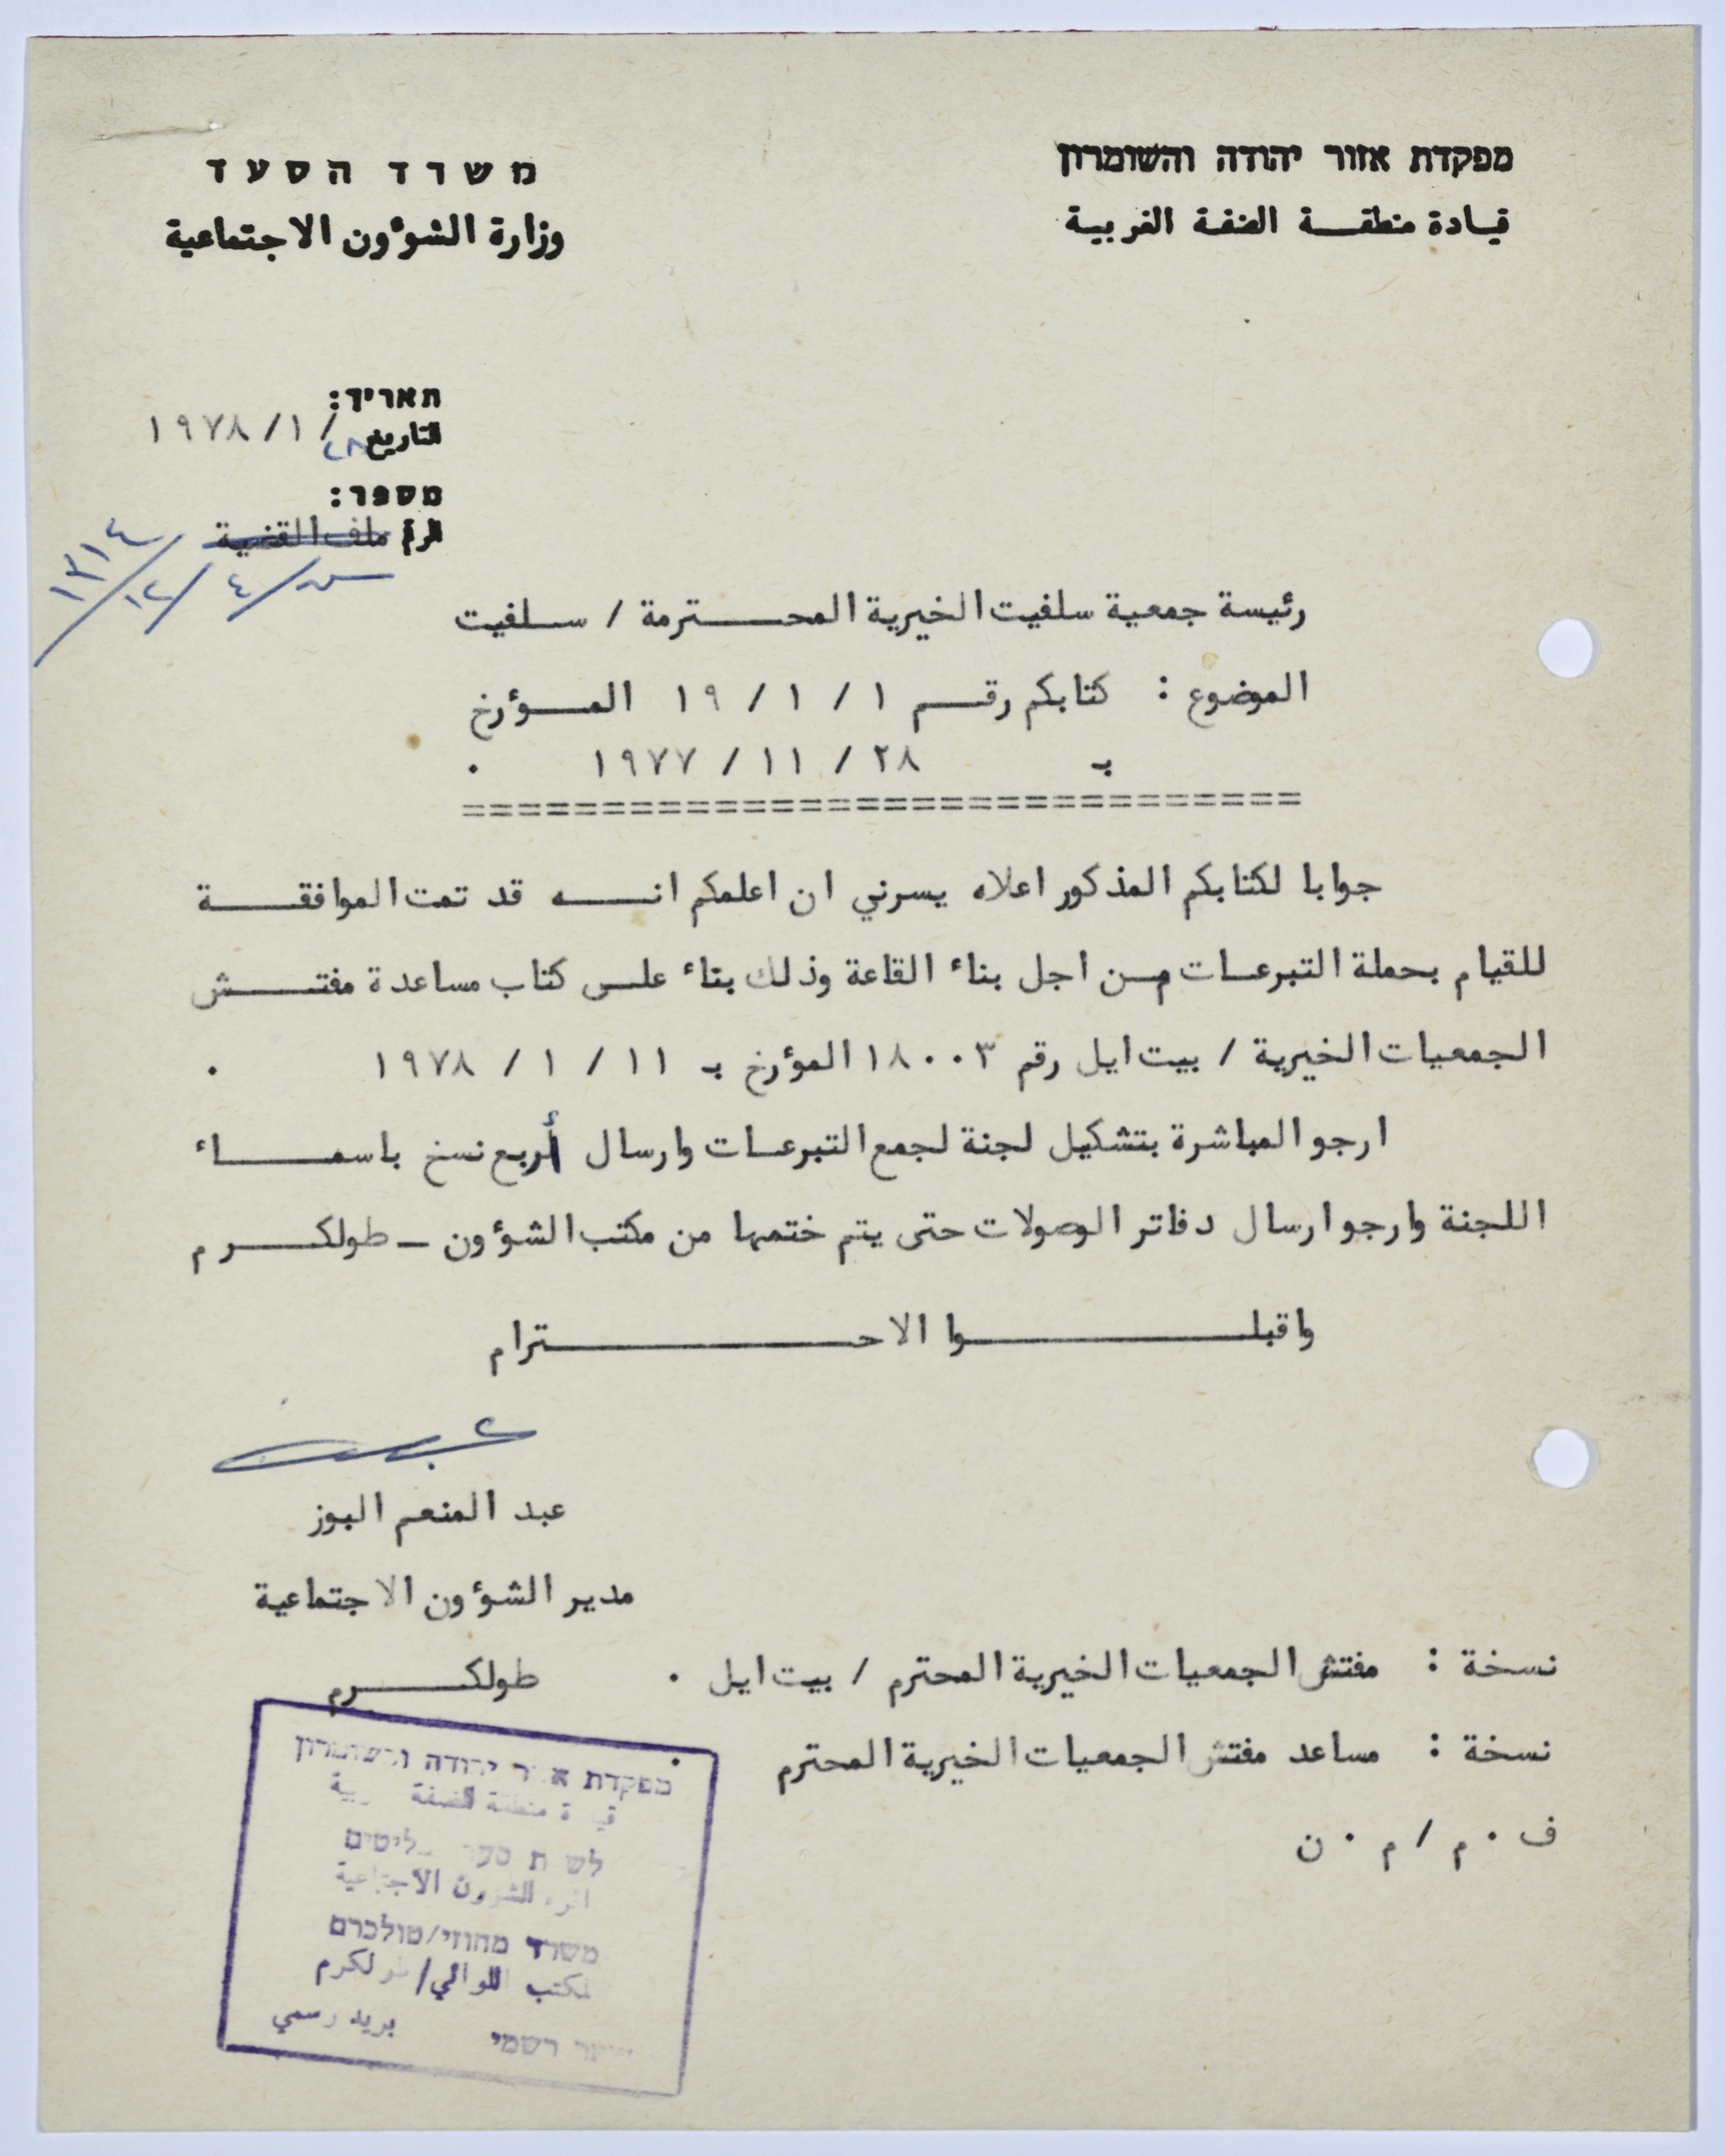 מפקדת אזור יהודה והשומרון
قيادة منطقة الضفة الغربية
משרד הסעד
وزارة الشؤون الاجتماعية
תאריך:
التاريخ ٢٨/ ١/ ١٩٧٨
מספר:
الرقم ملف القضية
رئيسة جمعية سلفيت الخيرية المحترمة / سلفيت
الموضوع : كتابكم رقم ١ / ١ / ١٩ المؤرخ
بـ ٢٨ / ١١ / ١٩٧٧ .
==============================
جوابا لكتابكم المذكور اعلاه يسرني ان اعلمكم انه قد تمت الموافقة
للقيام بحملة التبرعات من اجل بناء القاعة وذلك بناء على كتاب مساعدة مفتش
الجمعيات الخيرية / بيت ايل رقم ١٨٠٠٣ المؤرخ بـ ١١ / ١ / ١٩٧٨ .
ارجو المباشرة بتشكيل لجنة لجمع التبرعات وارسال أربع نسخ باسماء
اللجنة وارجو ارسال دفاتر الوصولات حتى يتم ختمها من مكتب الشؤون ــ طولكرم
واقبلوا الاحترام
عبد المنعم البوز
مدير الشؤون الاجتماعية
طولكرم
نسخة : مفتش الجمعيات الخيرية المحترم / بيت ايل .
نسخة : مساعد مفتش الجمعيات الخيرية المحترم .
ف . م / م . ن
מפקדת אזור יהודה והשומרון
منطقة الضفة
الشؤون الاجتماعية
משרד מחוזי/טולכרם
مكتب اللوائي/طولكرم
רשמי بريد رسمي